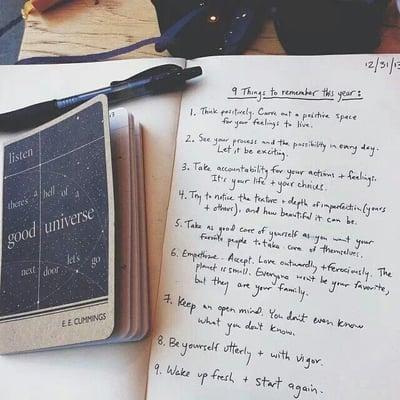 listen
there's a hell of a
good universe
next door let's go
E.E. CUMMINGS
12/31/13
9 Things to remember this year:
1. Think positively. Carve out a positive space
for your feelings to live.
2. See your process and the possibility in every day.
Let it be exciting.
3. Take accountability for your actions + feelings.
It's your life + your choices.
4. Try to notice the texture + depth of imperfection (yours
+ others), and how beautiful it can be.
5. Take as good care of yourself as you want your
favorite people to take care of themselves.
6. Empathize. Accept. Love outwardly + ferociously. The
planet is small. Everyone won't be your favorite,
but they are your family.
7. Keep an open mind. You don't even know
what you don't know.
8. Be yourself utterly + with vigor.
9. Wake up fresh + start again.